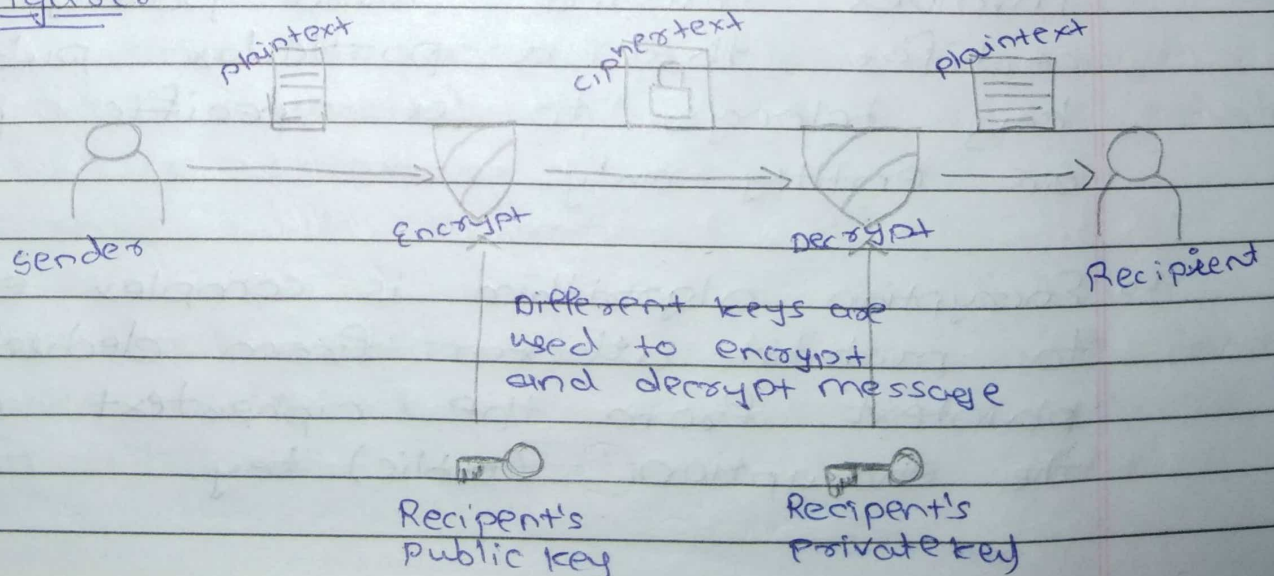 plaintext
ciphertext
plaintext
Encrypt
Decrypt
Sender
Recipient
Different keys are
used to encrypt
and decrypt message
Recipent's
public key
Recipent's
private key